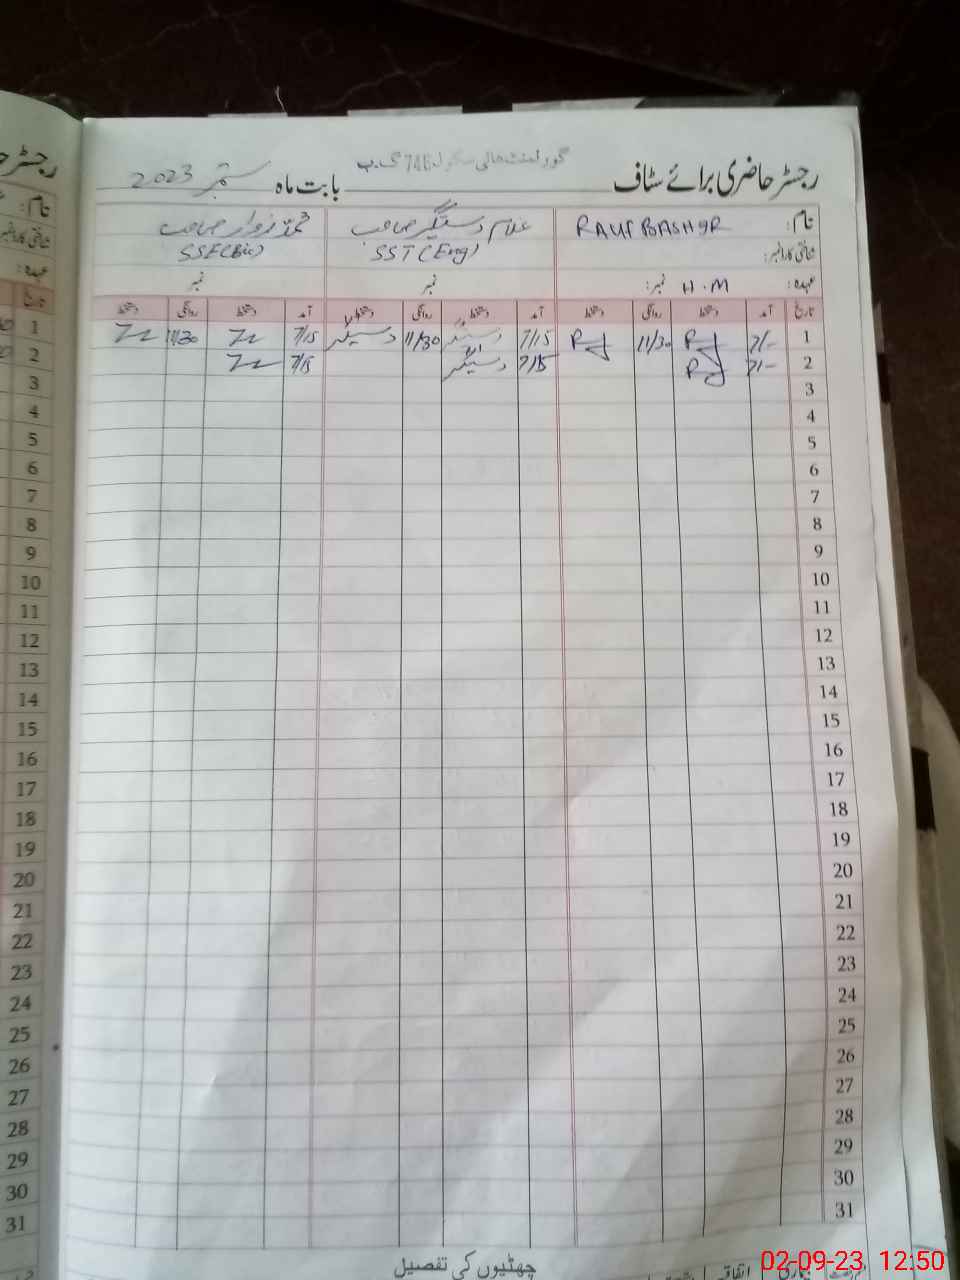 رجسٹر حاضری برائے سٹاف گورنمنٹ ہائی سکول 746 گ ب بابت ماہ ستمبر 2023
نام: RAUF BASHIR غلام دستگیر صاحب محمد صاحب
شناختی کارڈ نمبر: SST (Eng) SSE(Bio)
عہدہ: H.M نمبر: نمبر نمبر
تاریخ آمد دستخط روانگی دستخط آمد دستخط روانگی دستخط آمد دستخط روانگی دستخط
1 7/- 11/30 7/15 دستگیر 11/30 دستگیر 7/15 11/30
2 7/- 7/15 دستگیر 7/15
3
4
5
6
7
8
9
10
11
12
13
14
15
16
17
18
19
20
21
22
23
24
25
26
27
28
29
30
31
چھٹیوں کی تفصیل
اتفاقیہ
رجسٹر
نام:
شناختی کارڈ نمبر
عہدہ:
تاریخ
1
2
3
4
5
6
7
8
9
10
11
12
13
14
15
16
17
18
19
20
21
22
23
24
25
26
27
28
29
30
31
02-09-23 12:50